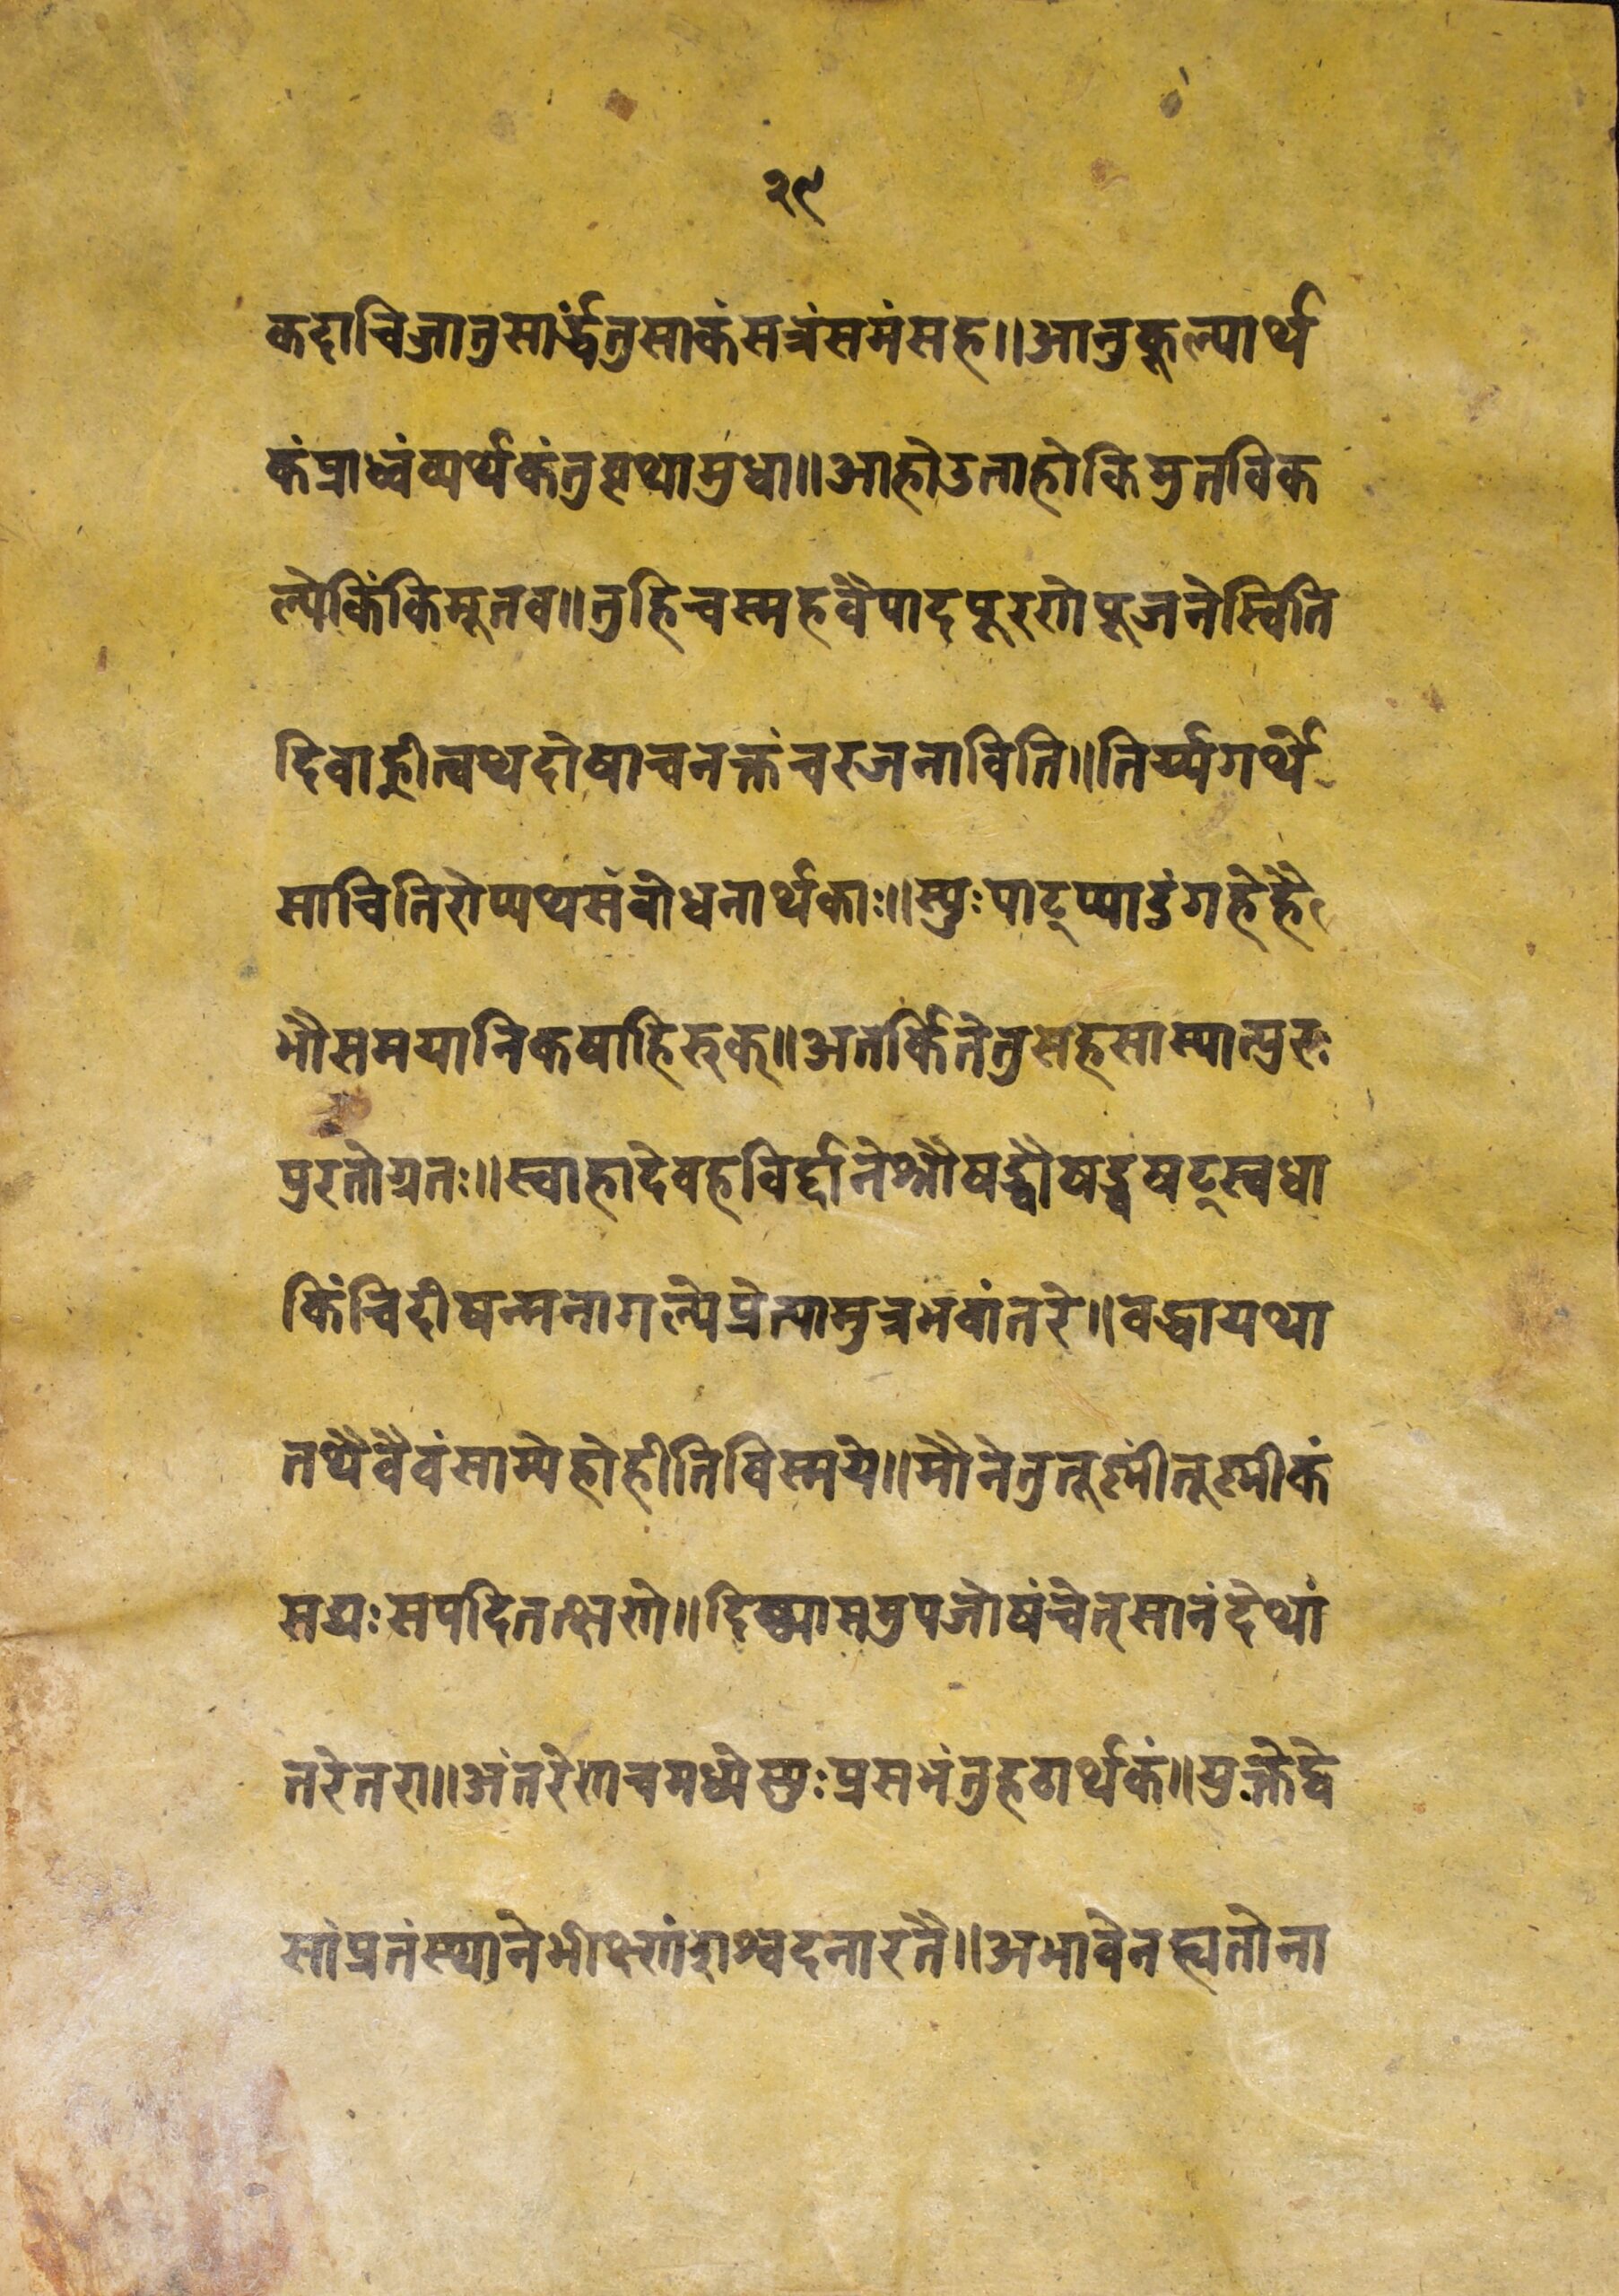 २९
कदाचिज्जातुसार्द्धंतुसाकंसत्रंसमंसह॥आनुकूल्यार्थ
कंप्राध्वंव्यर्थकंतुवृथामुधा॥आहोउताहोकिमुतविक
ल्पेकिंकिमूतव॥तुहिचस्महवैपादपूरणेपूजनेस्विति
दिवाह्नीत्वथदोषाचनक्तंचरजनाविति॥तिर्य्यगर्थे
साचितिरोप्यथसंबोधनार्थकाः॥स्युःपाट्प्याडंगहेहै
भौसमयानिकषाहिरुक्॥अतर्कितेतुसहसास्यात्पुरः
पुरतोग्रतः॥स्वाहादेवहविर्द्दानेश्रौषड्वौषड्वषट्स्वधा
किंचिदीषन्मनागल्पेप्रेत्यामुत्रभवांतरे॥वद्वायथा
तथैवैवंसाम्येहोहीतिविस्मये॥मौनेतुतूष्णींतूष्णीकं
सद्यःसपदितत्क्षणे॥दिष्ट्यासमुपजोषंचेत्सानंदेथां
तरेतरा॥अंतरेणचमध्येस्युःप्रसभंतुहठार्थकं॥युक्तेद्वे
सांप्रतंस्थानेभीक्ष्णंशश्वदनारतै॥अभावेनह्यतोना